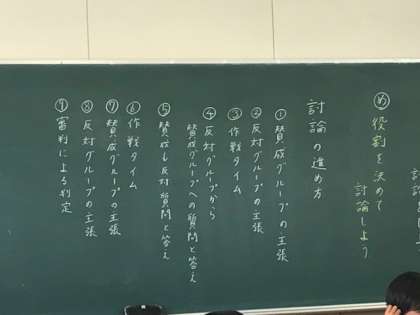 討論
め 役割を決めて
討論しよう
討論の進め方
① 賛成グループの主張
② 反対グループの主張
③ 作戦タイム
④ 反対グループから
賛成グループへの質問と答え
⑤ 賛成も反対 質問と答え
⑥ 作戦タイム
⑦ 賛成グループの主張
⑧ 反対グループの主張
⑨ 審判による判定